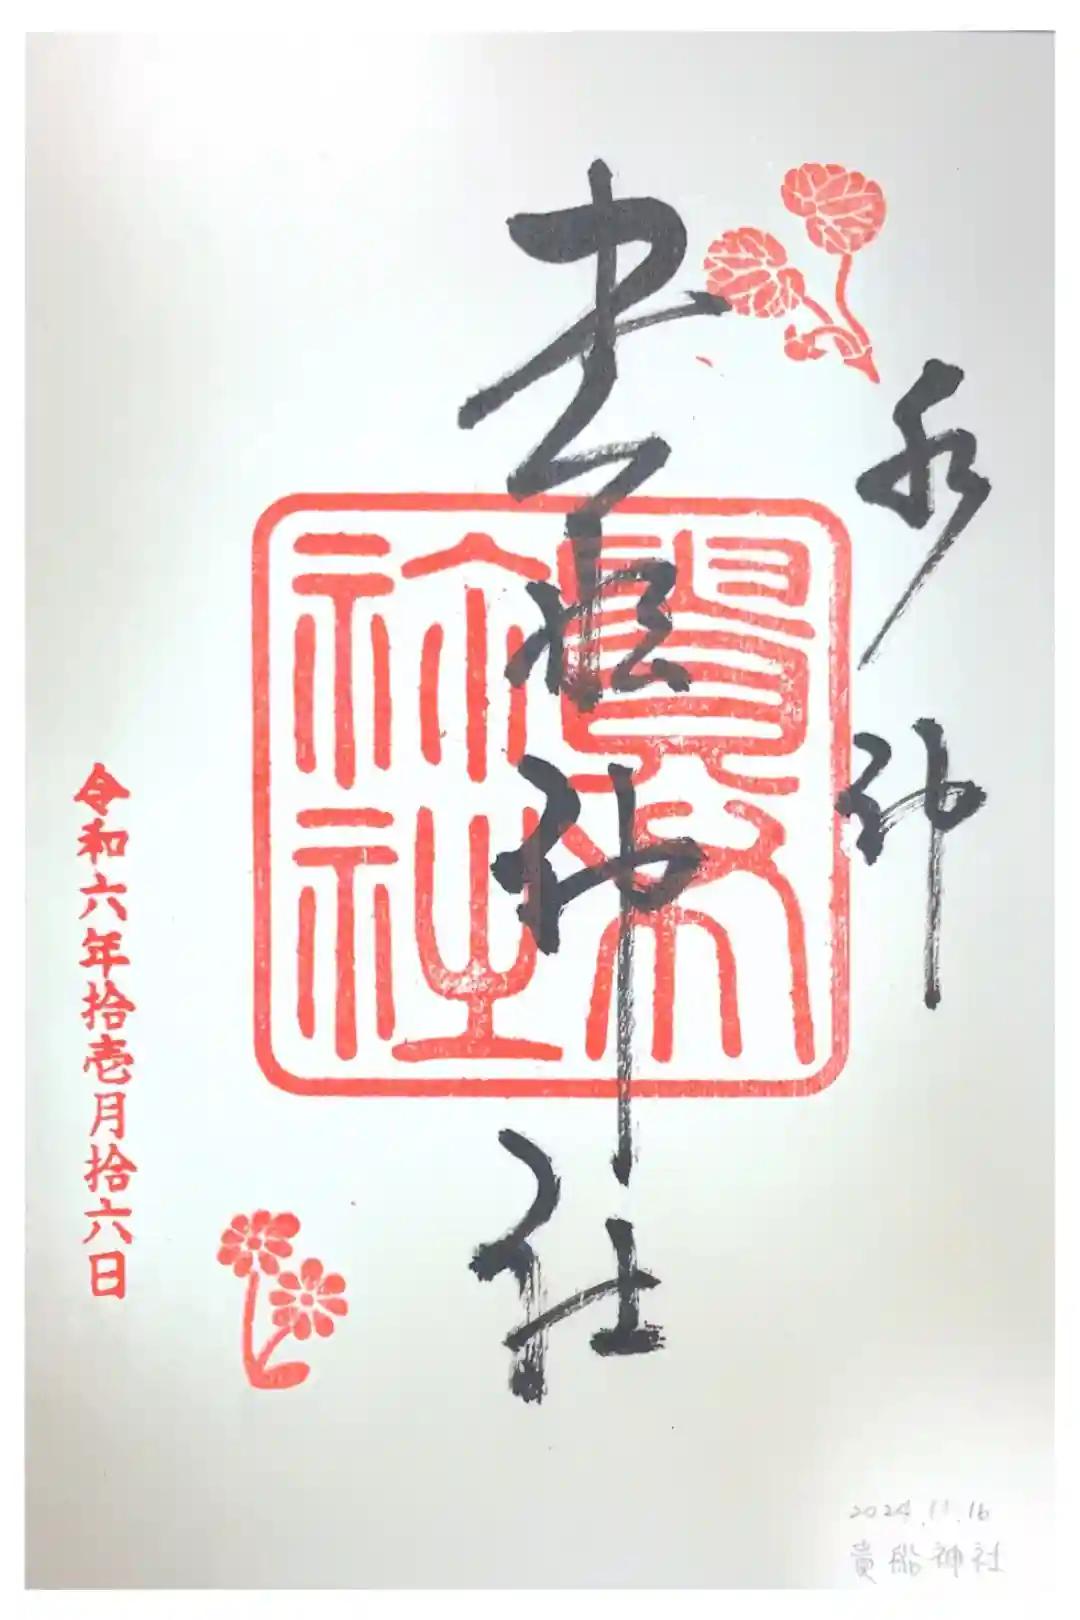 水神
貴船神社
貴布
祢社
令和六年拾壱月拾六日
2024.11.16
貴船神社